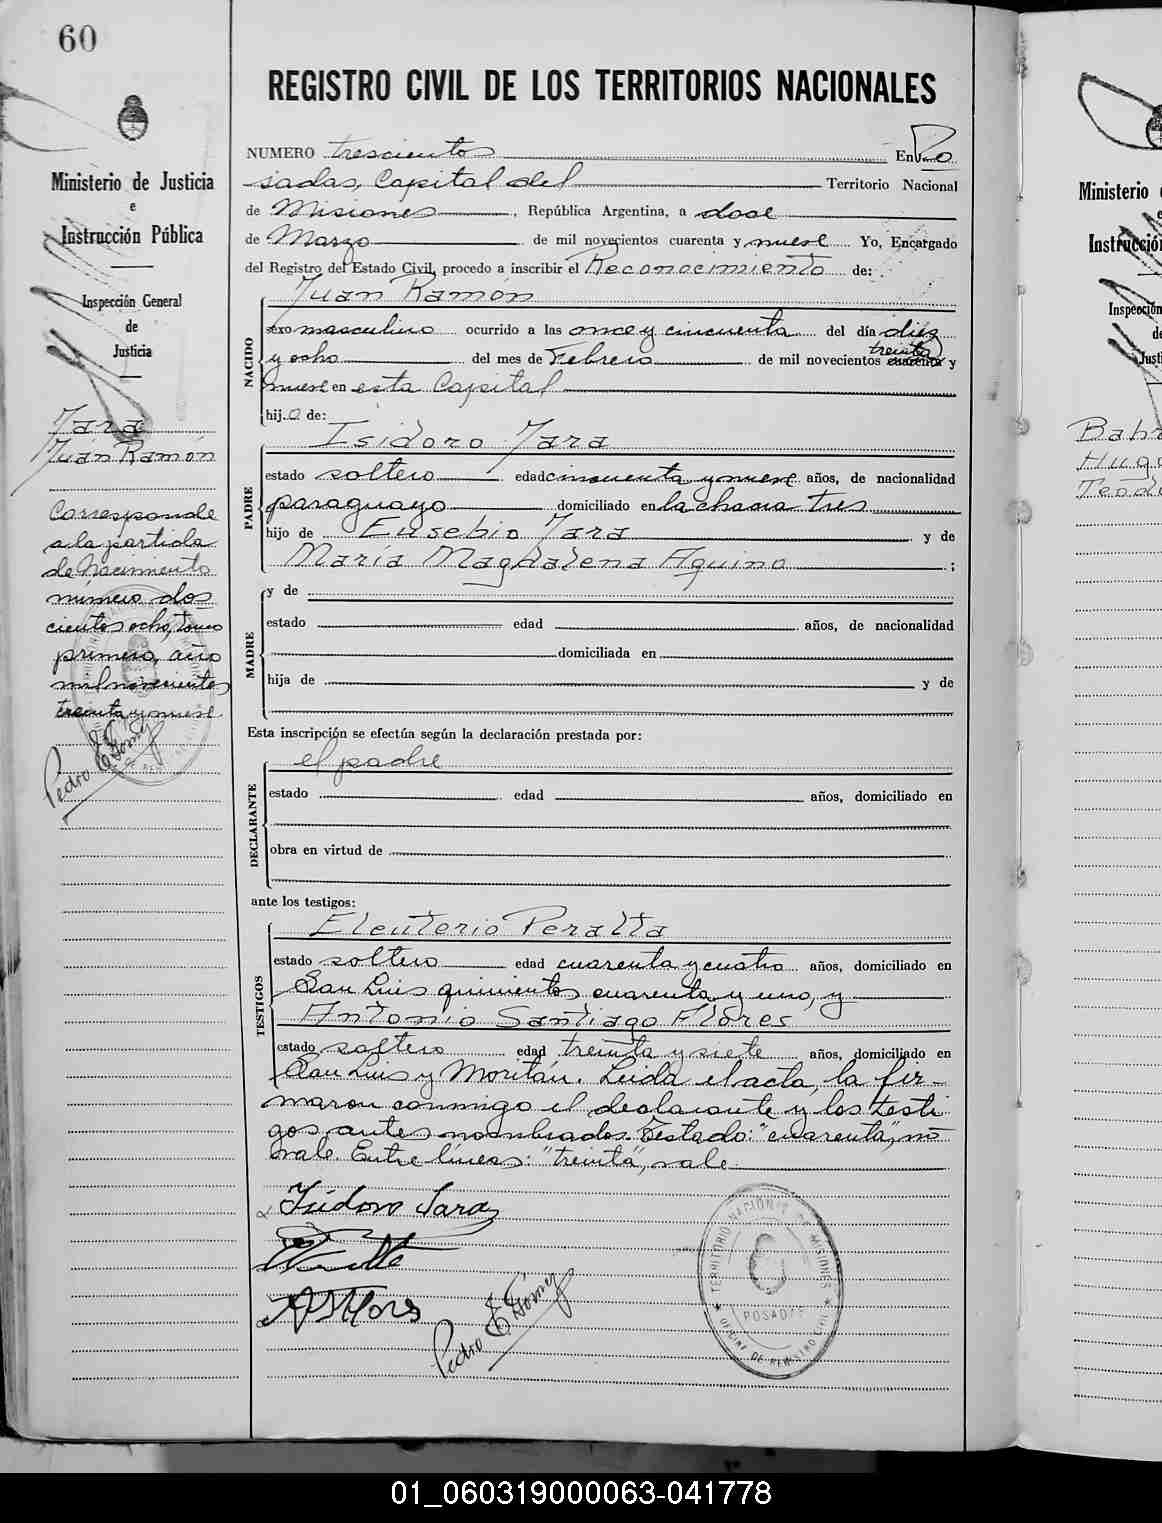 60
REGISTRO CIVIL DE LOS TERRITORIOS NACIONALES
Ministerio de Justicia
e
Instrucción Pública
Inspección General
de
Justicia
Jara
Juan Ramón
Corresponde
a la partida
de Nacimiento
número dos
cientos ocho, tomo
primero, año
mil novecientos
treinta y nueve
Pedro E. Gómez
NUMERO trescientos En Po
sadas, Capital del Territorio Nacional
de Misiones, República Argentina, a doce
de Marzo de mil novecientos cuarenta y nueve Yo, Encargado
del Registro del Estado Civil, procedo a inscribir el Reconocimiento de:
NACIDO
Juan Ramón
sexo masculino ocurrido a las once y cincuenta del día diez
treinta
y ocho del mes de Febrero de mil novecientos cuarenta y
nueve en esta Capital
hijo de:
PADRE
Isidoro Jara
estado soltero edad cincuenta y nueve años, de nacionalidad
paraguayo domiciliado en la chacra tres
hijo de Eusebio Jara y de
María Magdalena Aquino ;
MADRE
y de
estado edad años, de nacionalidad
domiciliada en
hija de y de
Esta inscripción se efectúa según la declaración prestada por:
DECLARANTE
el padre
estado edad años, domiciliado en
obra en virtud de
ante los testigos:
TESTIGOS
Eleuterio Peralta
estado soltero edad cuarenta y cuatro años, domiciliado en
San Luis quinientos cuarenta y uno, y
Antonio Santiago Flores
estado soltero edad treinta y siete años, domiciliado en
San Luis y Moritán. Leída el acta, la fir-
maron conmigo el declarante y los testi
gos antes nombrados. Testado: "cuarenta", no
vale. Entre líneas: "treinta", vale.
Isidoro Jara
A S Flores
Pedro E. Gómez
TERRITORIO NACIONAL DE MISIONES
POSADAS
OFICINA DE REGISTRO CIVIL
Ministerio
Instrucción
Inspección
de
Justi
Hugo
Teodo
01_060319000063-041778